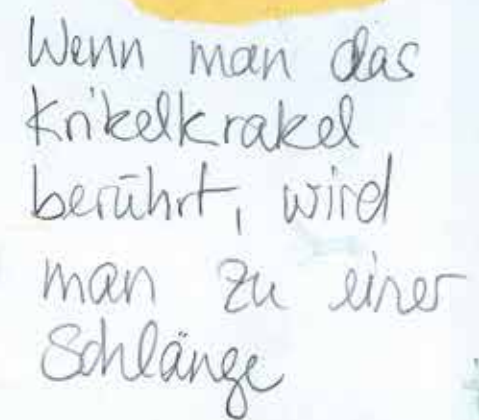 Wenn man das
Krikelkrakel
berührt, wird
man zu einer
Schlänge